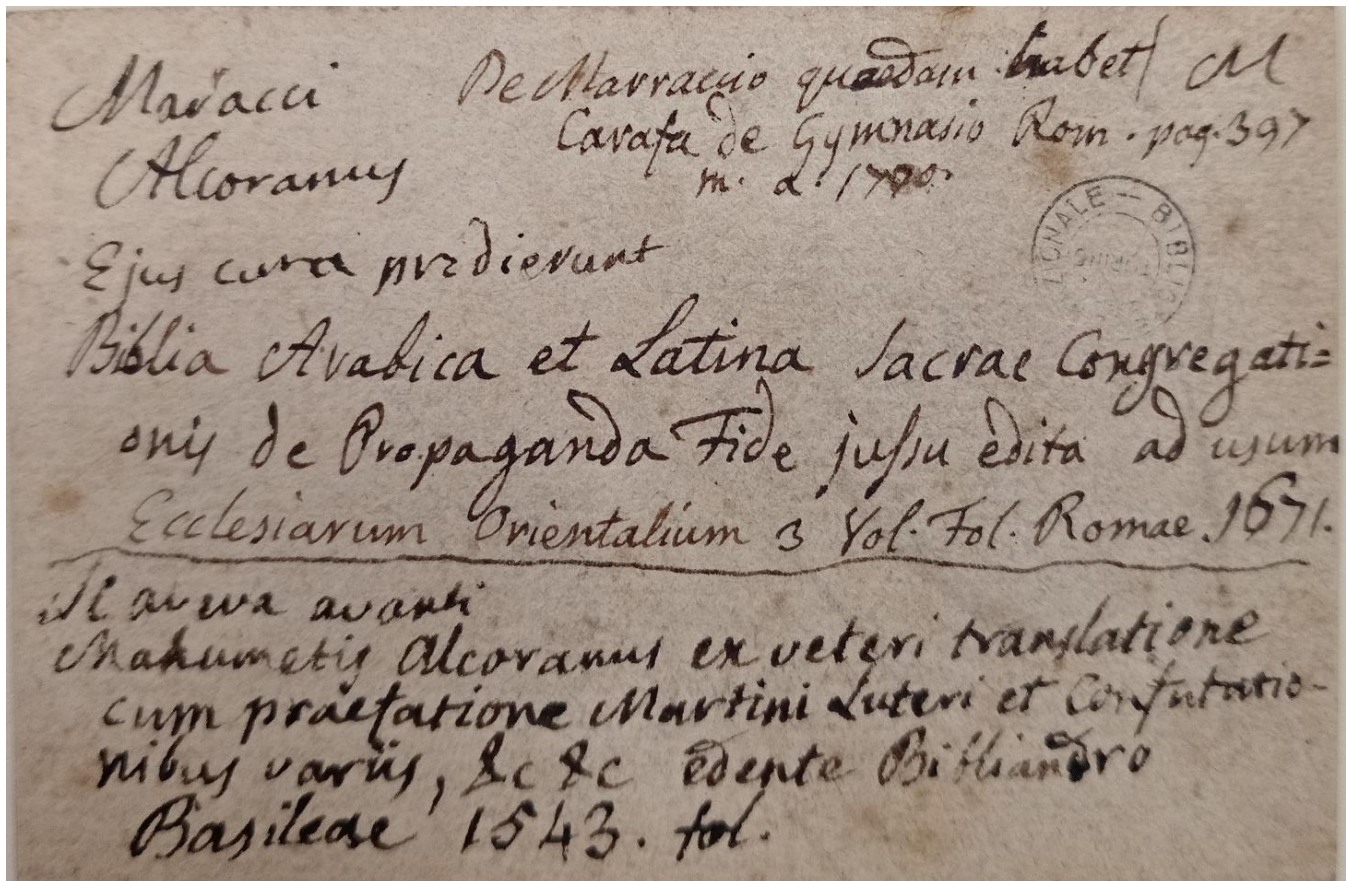 Maracci
Alcoranus
De Marraccio quaedam habet M
Carafa de Gymnasio Rom. pag. 397
m. a. 1700.
LIONALE — BIBLI
Ejus cura prodierunt
Biblia Arabica et Latina Sacrae Congregati=
onis de Propaganda Fide jussu edita ad usum
Ecclesiarum Orientalium 3 Vol. Fol. Romae. 1671.
Si aveva avanti
Mahumetis Alcoranus ex veteri translatione
cum praefatione Martini Luteri et Confutatio-
nibus variis, &c &c edente Bibliandro
Basileae 1543. fol.